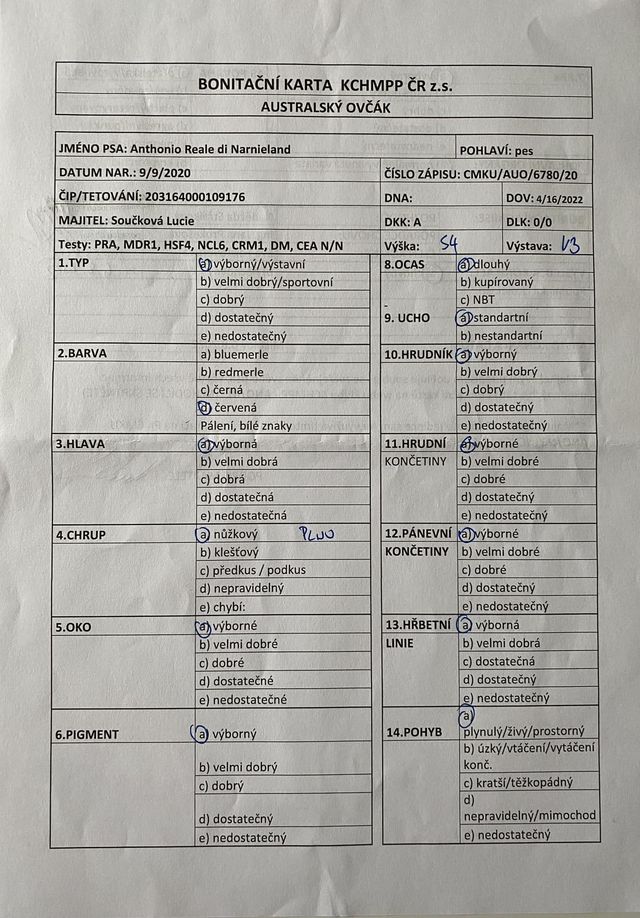 BONITAČNÍ KARTA KCHMPP ČR z.s.
AUSTRALSKÝ OVČÁK
JMÉNO PSA: Anthonio Reale di Narnieland
POHLAVÍ: pes
DATUM NAR.: 9/9/2020
ČÍSLO ZÁPISU: CMKU/AUO/6780/20
ČIP/TETOVÁNÍ: 203164000109176
DNA:
DOV: 4/16/2022
MAJITEL: Součková Lucie
DKK: A
DLK: 0/0
Testy: PRA, MDR1, HSF4, NCL6, CRM1, DM, CEA N/N
Výška: 54
Výstava: V3
1.TYP
a) výborný/výstavní
b) velmi dobrý/sportovní
c) dobrý
d) dostatečný
e) nedostatečný
2.BARVA
a) bluemerle
b) redmerle
c) černá
d) červená
Pálení, bílé znaky
3.HLAVA
a) výborná
b) velmi dobrá
c) dobrá
d) dostatečná
e) nedostatečná
4.CHRUP
a) nůžkový PLNO
b) klešťový
c) předkus / podkus
d) nepravidelný
e) chybí:
5.OKO
a) výborné
b) velmi dobré
c) dobré
d) dostatečné
e) nedostatečné
6.PIGMENT
a) výborný
b) velmi dobrý
c) dobrý
d) dostatečný
e) nedostatečný
8.OCAS
a) dlouhý
b) kupírovaný
c) NBT
-
9. UCHO
a) standartní
b) nestandartní
10.HRUDNÍK
a) výborný
b) velmi dobrý
c) dobrý
d) dostatečný
e) nedostatečný
11.HRUDNÍ
KONČETINY
a) výborné
b) velmi dobré
c) dobré
d) dostatečný
e) nedostatečný
12.PÁNEVNÍ
KONČETINY
a) výborné
b) velmi dobré
c) dobré
d) dostatečný
e) nedostatečný
13.HŘBETNÍ
LINIE
a) výborná
b) velmi dobrá
c) dostatečná
d) dostatečný
e) nedostatečný
14.POHYB
a)
plynulý/živý/prostorný
b) úzký/vtáčení/vytáčení
konč.
c) kratší/těžkopádný
d)
nepravidelný/mimochod
e) nedostatečný